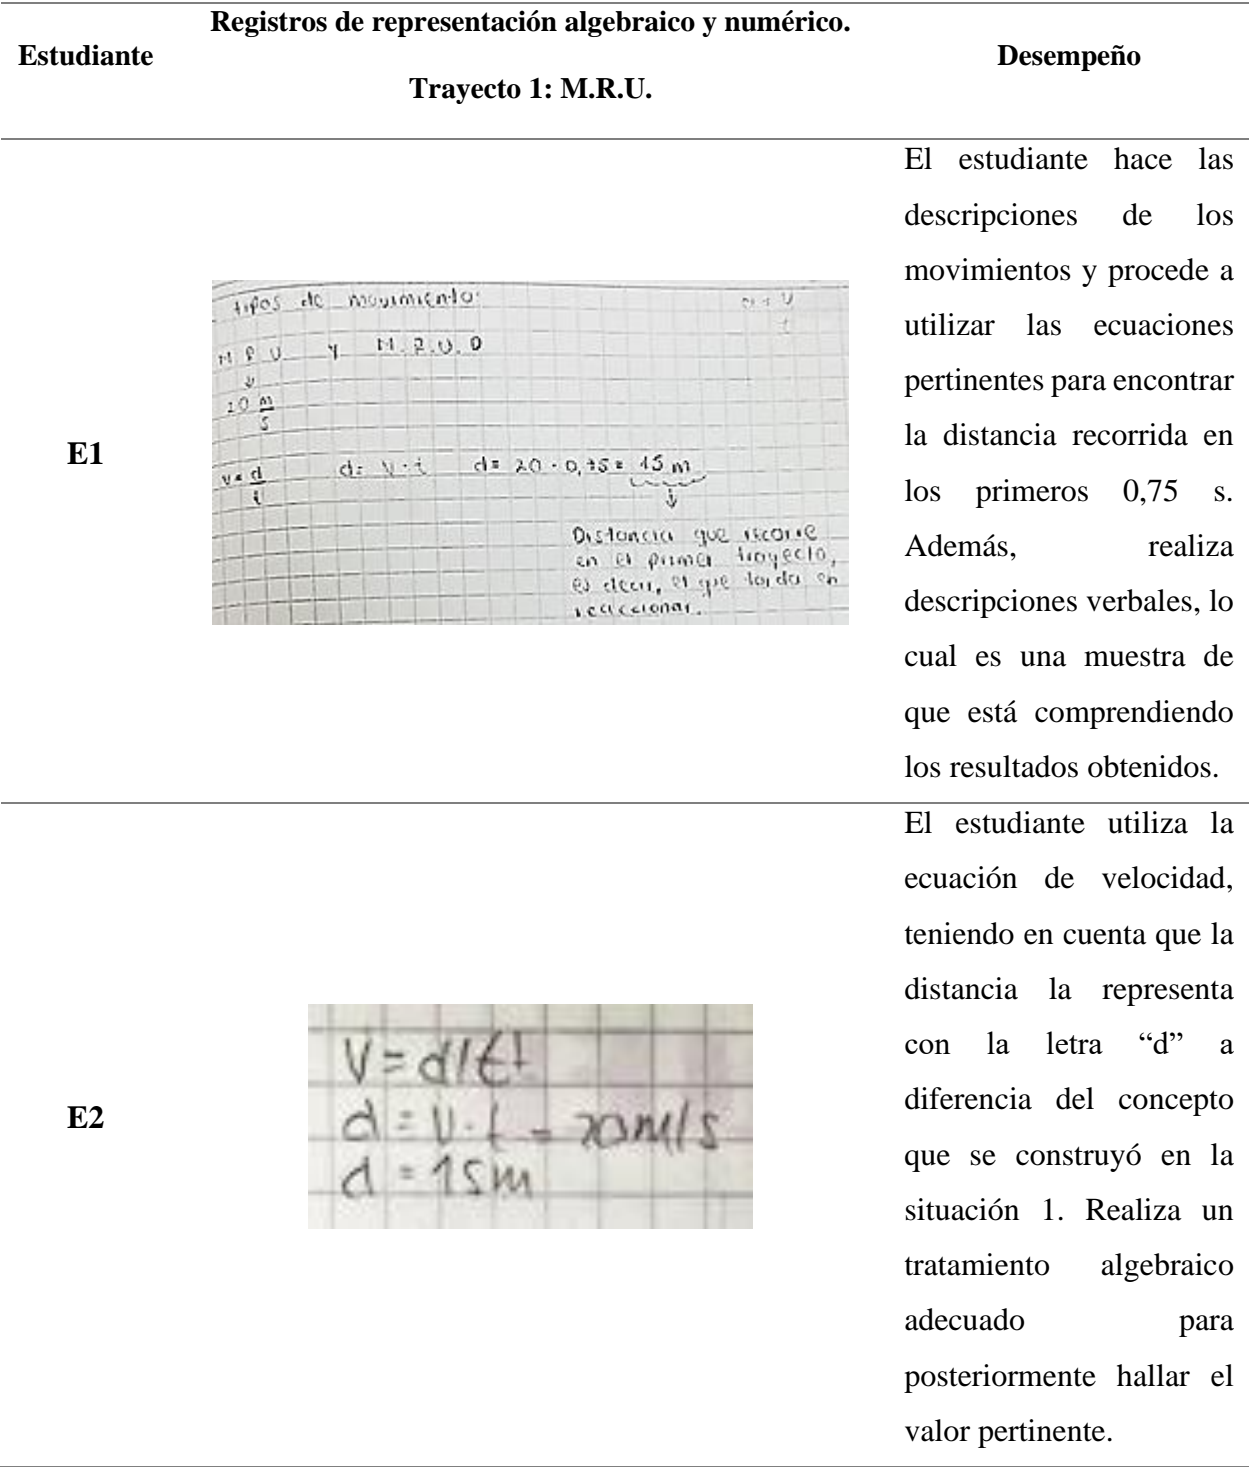 Estudiante
Registros de representación algebraico y numérico.
Trayecto 1: M.R.U.
Desempeño
E1
tipos de movimiento:
M R U y M.R.U.D
20 m
s
v = d
t
d = v · t d = 20 · 0,75 = 15 m
Distancia que recorre
en el primer trayecto,
es decir, el que tarda en
reaccionar.
El estudiante hace las
descripciones de los
movimientos y procede a
utilizar las ecuaciones
pertinentes para encontrar
la distancia recorrida en
los primeros 0,75 s.
Además, realiza
descripciones verbales, lo
cual es una muestra de
que está comprendiendo
los resultados obtenidos.
E2
V = d/t
d = V · t = 20 m/s
d = 15m
El estudiante utiliza la
ecuación de velocidad,
teniendo en cuenta que la
distancia la representa
con la letra “d” a
diferencia del concepto
que se construyó en la
situación 1. Realiza un
tratamiento algebraico
adecuado para
posteriormente hallar el
valor pertinente.